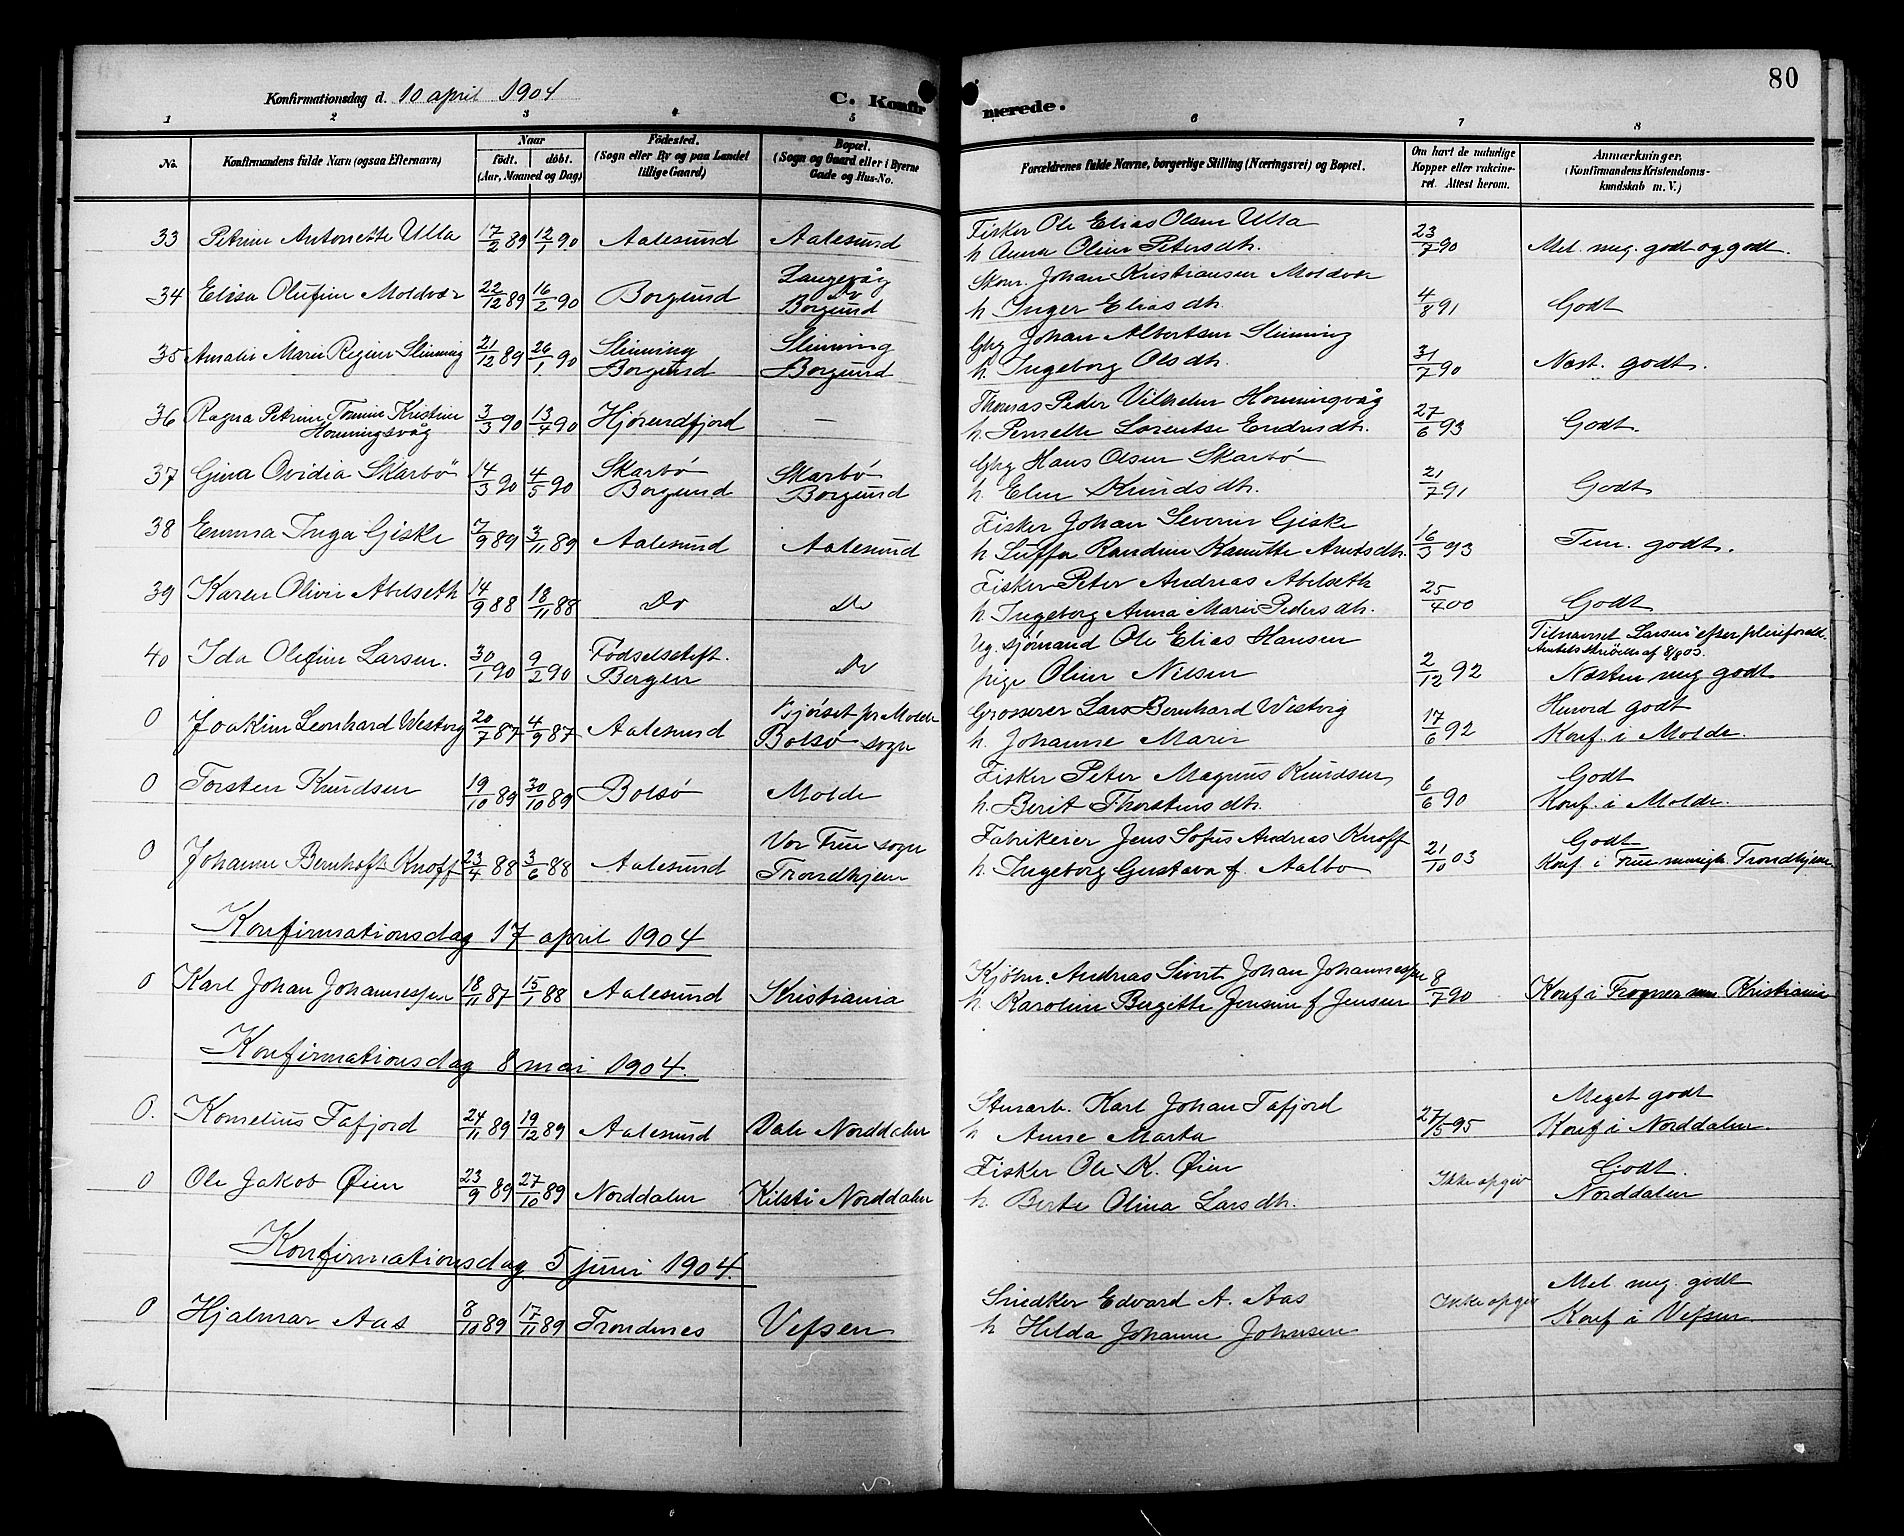 80
Konfirmationsdag d. 10 april 1904
C. Konfirmerede.
1 2 3 4 5 6 7 8
No. Konfirmandens fulde Navn (ogsaa Efternavn) Naar født. døbt. (Aar, Maaned og Dag) Fødested. (Sogn eller By og paa Landet tillige Gaard) Bopæl. (Sogn og Gaard eller i Byerne Gade og Hus-No. Forældrenes fulde Navne, borgerlige Stilling (Næringsvei) og Bopæl. Om havt de naturlige Kopper eller vakcineret. Attest herom. Anmærkninger. (Konfirmandens Kristendomskundskab m. V.)
33 Petrine Antonette Ulla 17/2 89 12/1 90 Aalesund Aalesund Fisker Ole Elias Olsen Ulla
h Anna Oline Petersdtr. 23/7 90 Mel. meg. godt og godt.
34 Elisa Olufine Moldvær 22/12 89 16/2 90 Borgund Langevåg Borgund Skom. Johan Kristiansen Moldvær
h Inger Eliasdtr. 4/8 91 Godt
35 Amalie Marie Regine Slinning 21/12 89 26/1 90 Slinning Borgund Slinning Borgund Gbg Johan Albertsen Slinning
h. Ingeborg Olsdtr. 31/7 90 Næst. godt.
36 Ragna Petrine Tomine Kristine Honningsvåg 3/3 90 13/4 90 Hjørendfjord — Thomas Peder Vilhelm Honningsvåg
h. Pernelle Lorentse Endresdtr. 27/6 93 Godt.
37 Gina Ovidia Skarbö 14/3 90 4/5 90 Skarbö Borgund Skarbö Borgund Gbg Hans Olsen Skarbö
h. Elen Knudsdtr. 21/7 91 Godt
38 Emma Inga Giske 7/9 89 3/11 89 Aalesund Aalesund Fisker Johan Severin Giske
h. Randine 16/3 93 Tem. godt.
39 Karen Olivie Abelseth 14/9 88 18/11 88 Do Do Fisker Peter Andreas Abelseth
h. Ingeborg Anna Marie Pedersdtr. 25/4 00 Godt
40 Ida Olefine Larsen. 30/1 90 9/2 90 Fødselsstift. Bergen Do Ug. sjømand Ole Elias Hansen
pige Oline Nilsen 2/12 92 Tilnavnet Larsen efter pleieforæld. Næsten meg godt
0 Joakim Leonhard Westvig 20/7 87 4/9 87 Aalesund pr Molde Bolsø sogn Grosserer Lars Bernhard Westvig
h. Johanne Marie 17/6 92 godt Konf. i Molde.
0 Torsten Knudsen 19/10 89 30/10 89 Bolsø Molde Fisker Peter Magnus Knudsen
h. Berit Thorstensdtr. 6/6 90 Godt Konf. i Molde.
0 Johanne Bernhoft Knoff 23/4 88 3/6 88 Aalesund Vor Frue sogn Trondhjem Fabrikeier Jens Sofus Andreas Knoff
h. Ingeborg Gustava f. Aalbo 21/10 03 Godt Konf. i Frue menigh. Trondhjem
Konfirmationsdag 17 april 1904
0 Karl Johan Johannessen 18/11 87 15/1 88 Aalesund Kristiania Kjøbm. Andreas Sivert Johan Johannessen
h. Karoline Bergette Jensine f Jensen 8/7 90 Konf i Frogner men Kristiania
Konfirmationsdag 8 mai 1904.
0. Kornelius Tafjord 24/11 89 19/12 89 Aalesund Dale Norddalen Stenarb. Karl Johan Tafjord
h Anne Marta 27/5 95 Meget godt Konf i Norddalen.
0 Ole Jakob Øien 23/9 89 27/10 89 Norddalen Kilsti Norddalen Fisker Ole K. Øien
h. Berte Olina Larsdtr. Ikke opgiv Godt. Norddalen
Konfirmationsdag 5 juni 1904.
0 Hjalmar Aas 8/10 89 17/11 89 Trondenes Vefsen Snedker Edvard A. Aas
h Hilda Johanne Johnsen Ikke opgiv Mel. meg. godt Konf i Vefsen.